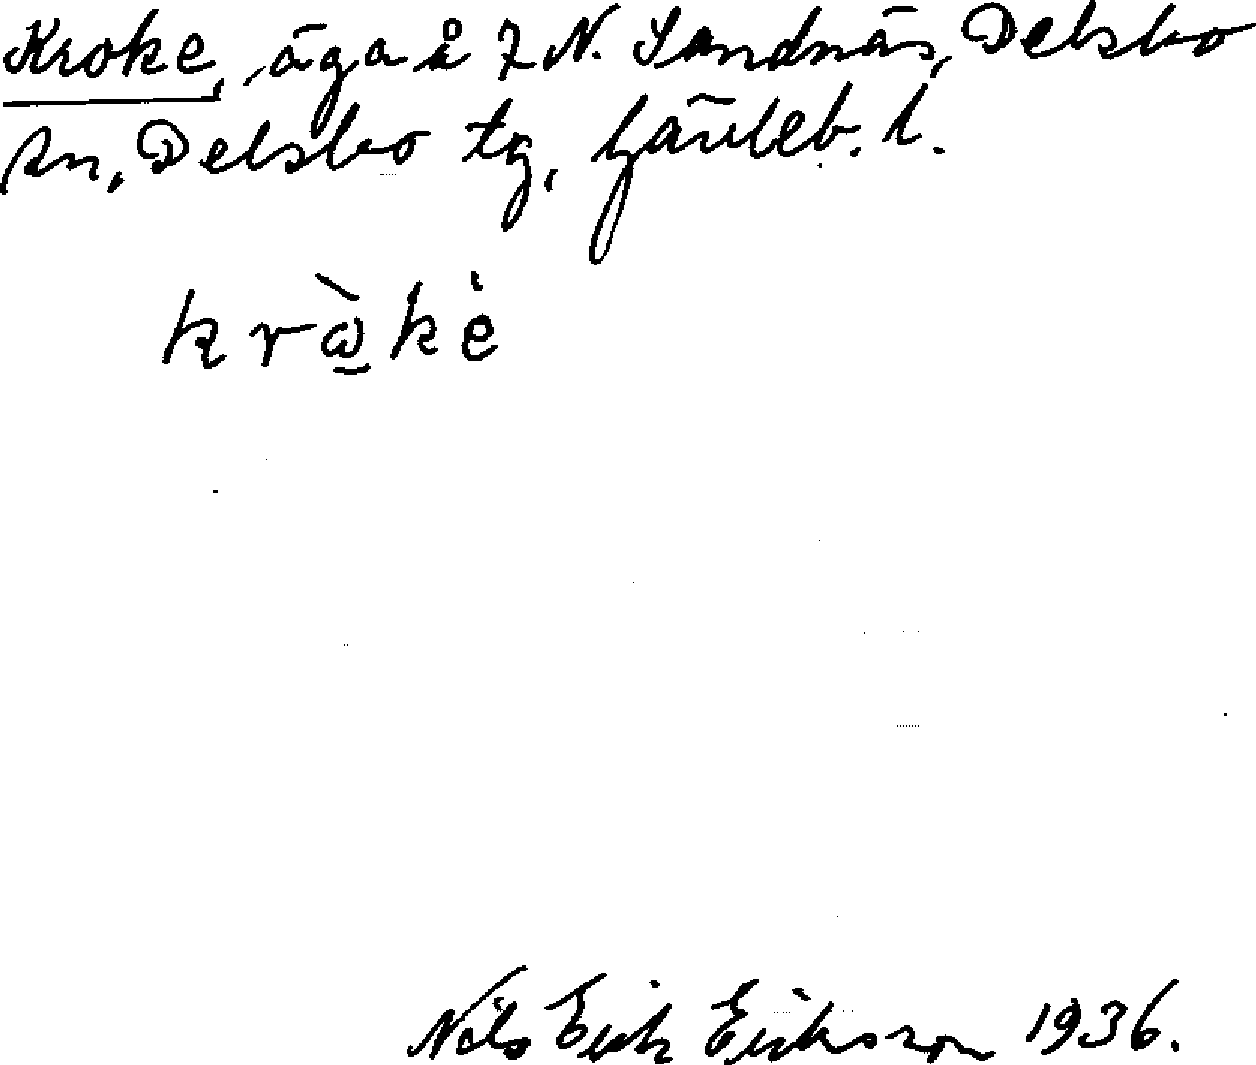 Kroke, äga å 7 N. Sandnäs, Delsbo
sn, Delsbo tg, Gävleb. l.
krὼ̱kè
Nils Erik Eriksson 1936.